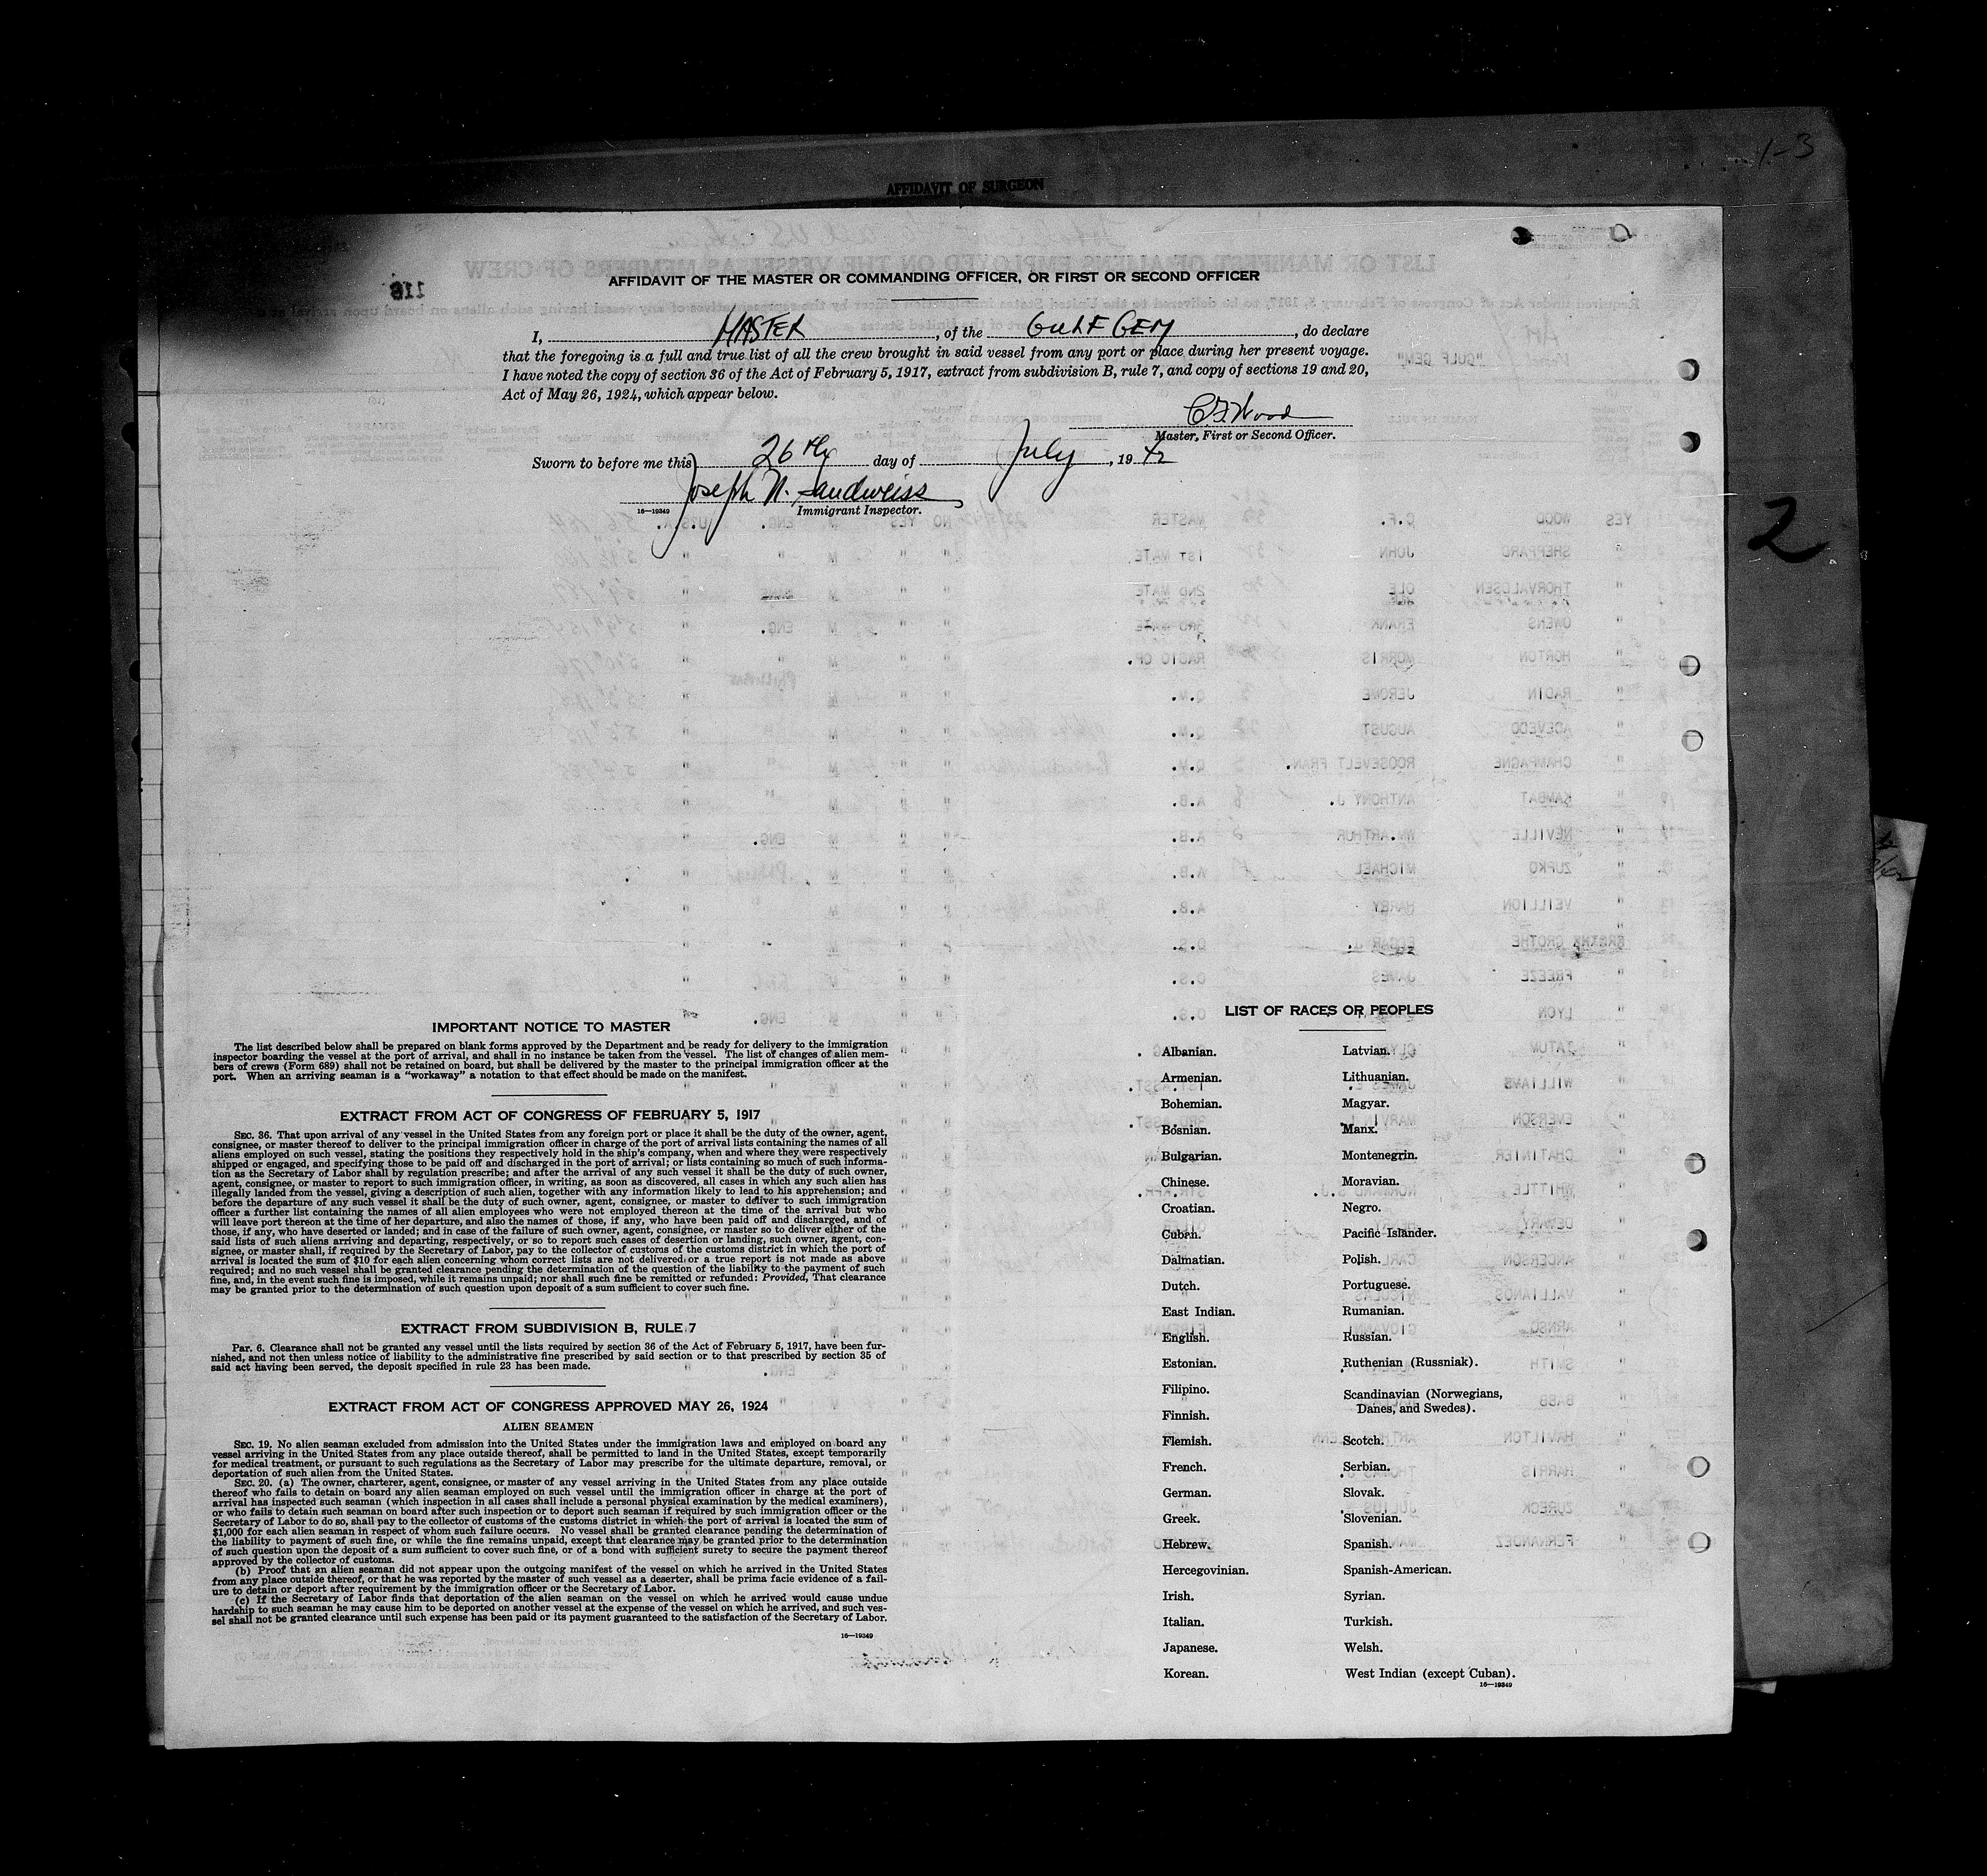 1-3
AFFIDAVIT OF SURGEON
AFFIDAVIT OF THE MASTER OR COMMANDING OFFICER, OR FIRST OR SECOND OFFICER
116
I, MASTER, of the GULF GEM, do declare
that the foregoing is a full and true list of all the crew brought in said vessel from any port or place during her present voyage.
I have noted the copy of section 36 of the Act of February 5, 1917, extract from subdivision B, rule 7, and copy of sections 19 and 20,
Act of May 26, 1924, which appear below.
C.F. Wood
Master, First or Second Officer.
Sworn to before me this 26th day of July, 1942
Joseph N. Sandweiss
16—19349 Immigrant Inspector.
2
IMPORTANT NOTICE TO MASTER
The list described below shall be prepared on blank forms approved by the Department and be ready for delivery to the immigration
inspector boarding the vessel at the port of arrival, and shall in no instance be taken from the vessel. The list of changes of alien mem-
bers of crews (Form 689) shall not be retained on board, but shall be delivered by the master to the principal immigration officer at the
port. When an arriving seaman is a "workaway" a notation to that effect should be made on the manifest.
EXTRACT FROM ACT OF CONGRESS OF FEBRUARY 5, 1917
SEC. 36. That upon arrival of any vessel in the United States from any foreign port or place it shall be the duty of the owner, agent,
consignee, or master thereof to deliver to the principal immigration officer in charge of the port of arrival lists containing the names of all
aliens employed on such vessel, stating the positions they respectively hold in the ship's company, when and where they were respectively
shipped or engaged, and specifying those to be paid off and discharged in the port of arrival; or lists containing so much of such informa-
tion as the Secretary of Labor shall by regulation prescribe; and after the arrival of any such vessel it shall be the duty of such owner,
agent, consignee, or master to report to such immigration officer, in writing, as soon as discovered, all cases in which any such alien has
illegally landed from the vessel, giving a description of such alien, together with any information likely to lead to his apprehension; and
before the departure of any such vessel it shall be the duty of such owner, agent, consignee, or master to deliver to such immigration
officer a further list containing the names of all alien employees who were not employed thereon at the time of the arrival but who
will leave port thereon at the time of her departure, and also the names of those, if any, who have been paid off and discharged, and of
those, if any, who have deserted or landed; and in case of the failure of such owner, agent, consignee, or master so to deliver either of the
said lists of such aliens arriving and departing, respectively, or so to report such cases of desertion or landing, such owner, agent, con-
signee, or master shall, if required by the Secretary of Labor, pay to the collector of customs of the customs district in which the port of
arrival is located the sum of $10 for each alien concerning whom correct lists are not delivered or a true report is not made as above
required; and no such vessel shall be granted clearance pending the determination of the question of the liability to the payment of such
fine, and, in the event such fine is imposed, while it remains unpaid; nor shall such fine be remitted or refunded: Provided, That clearance
may be granted prior to the determination of such question upon deposit of a sum sufficient to cover such fine.
EXTRACT FROM SUBDIVISION B, RULE 7
Par. 6. Clearance shall not be granted any vessel until the lists required by section 36 of the Act of February 5, 1917, have been fur-
nished, and not then unless notice of liability to the administrative fine prescribed by said section or to that prescribed by section 35 of
said act having been served, the deposit specified in rule 23 has been made.
EXTRACT FROM ACT OF CONGRESS APPROVED MAY 26, 1924
ALIEN SEAMEN
SEC. 19. No alien seaman excluded from admission into the United States under the immigration laws and employed on board any
vessel arriving in the United States from any place outside thereof, shall be permitted to land in the United States, except temporarily
for medical treatment, or pursuant to such regulations as the Secretary of Labor may prescribe for the ultimate departure, removal, or
deportation of such alien from the United States.
SEC. 20. (a) The owner, charterer, agent, consignee, or master of any vessel arriving in the United States from any place outside
thereof who fails to detain on board any alien seaman employed on such vessel until the immigration officer in charge at the port of
arrival has inspected such seaman (which inspection in all cases shall include a personal physical examination by the medical examiners),
or who fails to detain such seaman on board after such inspection or to deport such seaman if required by such immigration officer or the
Secretary of Labor to do so, shall pay to the collector of customs of the customs district in which the port of arrival is located the sum of
$1,000 for each alien seaman in respect of whom such failure occurs. No vessel shall be granted clearance pending the determination of
the liability to payment of such fine, or while the fine remains unpaid, except that clearance may be granted prior to the determination
of such question upon the deposit of a sum sufficient to cover such fine, or of a bond with sufficient surety to secure the payment thereof
approved by the collector of customs.
(b) Proof that an alien seaman did not appear upon the outgoing manifest of the vessel on which he arrived in the United States
from any place outside thereof, or that he was reported by the master of such vessel as a deserter, shall be prima facie evidence of a fail-
ure to detain or deport after requirement by the immigration officer or the Secretary of Labor.
(c) If the Secretary of Labor finds that deportation of the alien seaman on the vessel on which he arrived would cause undue
hardship to such seaman he may cause him to be deported on another vessel at the expense of the vessel on which he arrived, and such ves-
sel shall not be granted clearance until such expense has been paid or its payment guaranteed to the satisfaction of the Secretary of Labor.
16—19349
LIST OF RACES OR PEOPLES
Albanian.
Armenian.
Bohemian.
Bosnian.
Bulgarian.
Chinese.
Croatian.
Cuban.
Dalmatian.
Dutch.
East Indian.
English.
Estonian.
Filipino.
Finnish.
Flemish.
French.
German.
Greek.
Hebrew.
Hercegovinian.
Irish.
Italian.
Japanese.
Korean.
Latvian.
Lithuanian.
Magyar.
Manx.
Montenegrin.
Moravian.
Negro.
Pacific Islander.
Polish.
Portuguese.
Rumanian.
Russian.
Ruthenian (Russniak).
Scandinavian (Norwegians,
Danes, and Swedes).
Scotch.
Serbian.
Slovak.
Slovenian.
Spanish.
Spanish-American.
Syrian.
Turkish.
Welsh.
West Indian (except Cuban).
16—19349